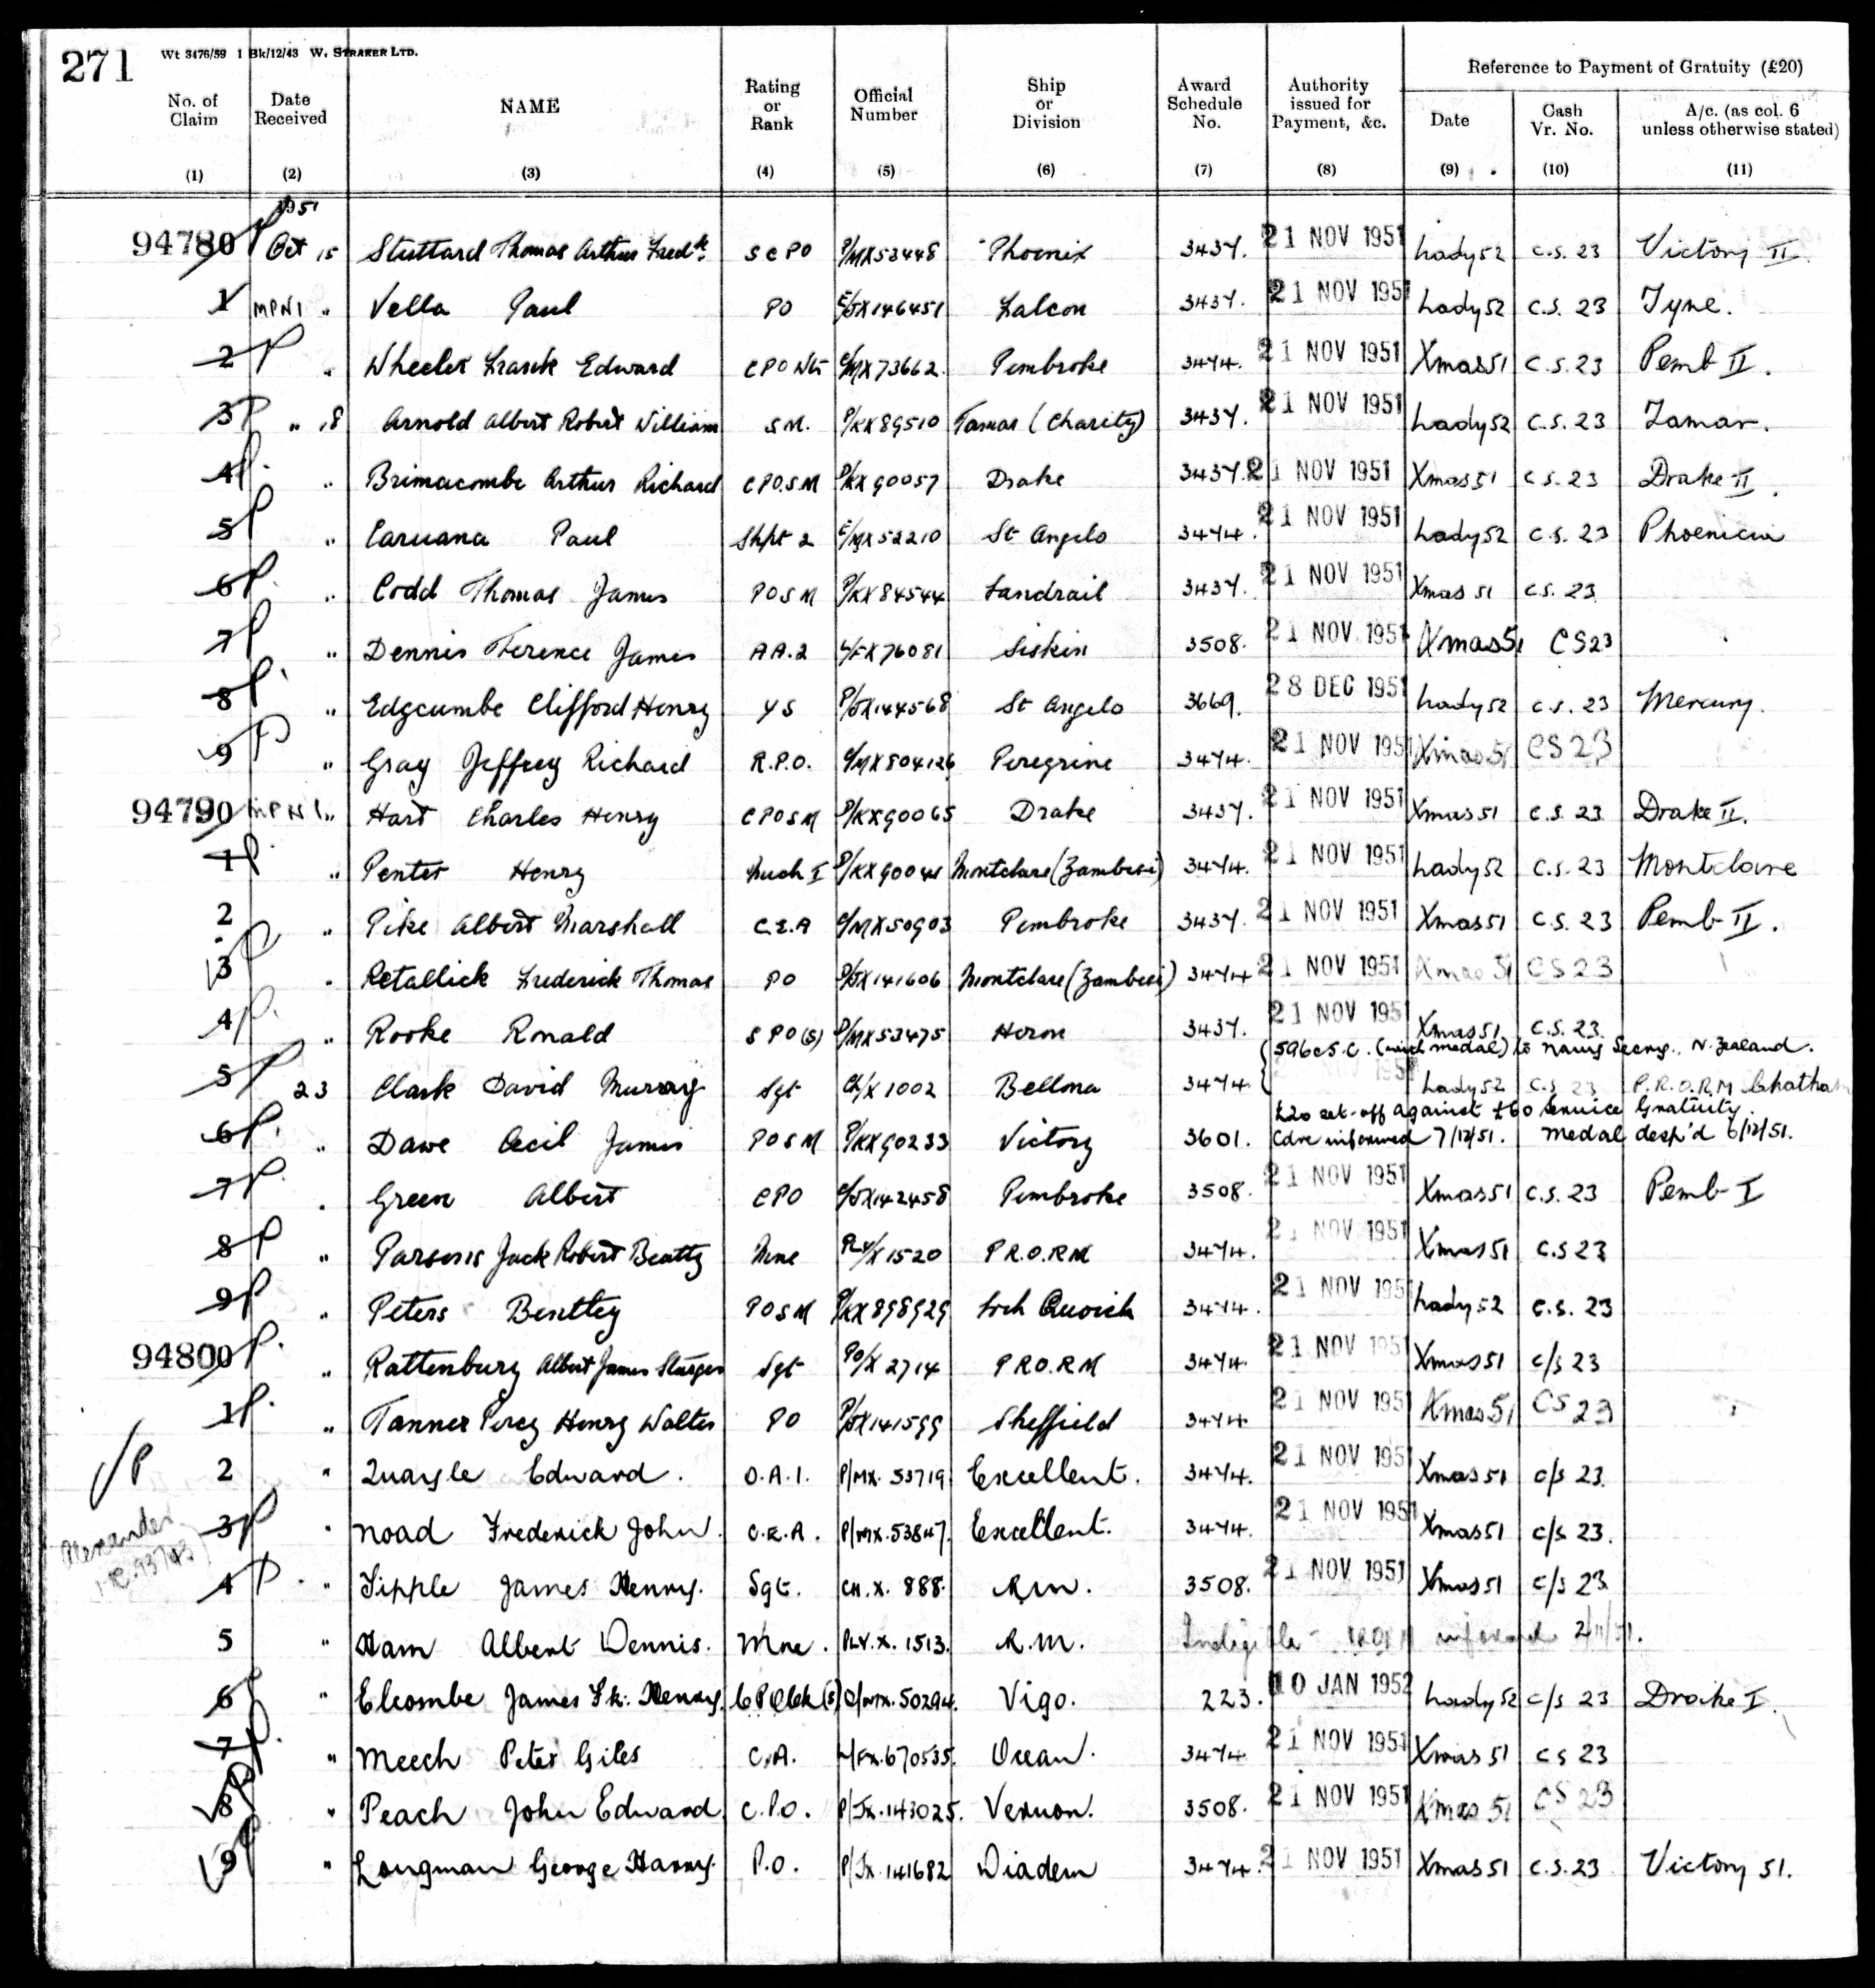 271 Wt 3476/59 1 Bk/12/43 W. STRAKER LTD.
Reference to Payment of Gratuity (£20)
No. of Claim Date Received NAME Rating or Rank Official Number Ship or Division Award Schedule No. Authority issued for Payment, &c. Date Cash Vr. No. A/c. (as col. 6 unless otherwise stated)
(1) (2) (3) (4) (5) (6) (7) (8) (9) (10) (11)
1951
94780 P Oct 15 Stuttard Thomas Arthur Fredk. SCPO P/MX53448 Phoenix 3437. 21 NOV 1951 Lady52 C.S. 23 Victory II
1 MPN1 " Vella Paul PO E/JX146451 Falcon 3437. 21 NOV 1951 Lady52 C.S. 23 Tyne.
2 P " Wheeler Frank Edward CPO Wtr C/MX73662 Pembroke 3474. 21 NOV 1951 Xmas51 C.S. 23 Pemb II.
3 P " 18 Arnold Albert Robert William S.M. P/KX89510 Tamar (Charity) 3437. 21 NOV 1951 Lady52 C.S. 23 Tamar.
4 P " Brimacombe Arthur Richard CPO.SM D/KX90057 Drake 3437. 21 NOV 1951 Xmas51 C.S. 23 Drake II.
5 P " Caruana Paul Shpt 2 E/MX52210 St Angelo 3474. 21 NOV 1951 Lady52 C.S. 23 Phoenicia
6 P " Codd Thomas James POSM P/KX84544 Landrail 3437. 21 NOV 1951 Xmas 51 C.S. 23
7 P " Dennis Terence James AA.2 L/FX76081 Siskin 3508. 21 NOV 1951 Xmas51 CS23
8 P " Edgcumbe Clifford Henry YS P/JX144568 St Angelo 3669. 28 DEC 1951 Lady52 C.S. 23 Mercury.
9 P " Gray Jeffrey Richard R.P.O. C/MX804126 Peregrine 3474. 21 NOV 1951 Xmas51 CS23
94790 MPN1 " Hart Charles Henry CPOSM D/KX90065 Drake 3437. 21 NOV 1951 Xmas51 C.S. 23 Drake II.
1 P " Penter Henry Mech I D/KX90041 Montclare (Zambesi) 3474. 21 NOV 1951 Lady52 C.S. 23 Montclare
2 " Pike Albert Marshall C.E.A C/MX50903 Pembroke 3437. 21 NOV 1951 Xmas51 C.S. 23 Pemb II.
3 P " Retallick Frederick Thomas PO D/JX141606 Montclare (Zambesi) 3474 21 NOV 1951 Xmas 51 CS23
4 P " Rooke Ronald SPO(S) D/MX53475 Heron 3437. 21 NOV 1951 Xmas51 C.S. 23
(with medal) to Navy Secy. N. Zealand.
5 P 23 Clark David Murray Sgt Ch/X 1002 Bellona 3474 Lady52 C.S 23 P.R.O.R.M Chatham
£20 set-off against £60 Service Gratuity.
6 P " Dawe Cecil James POSM P/KX90233 Victory 3601. Cdre informed 7/12/51. Medal desp'd 6/12/51.
7 P " Green Albert CPO C/JX142458 Pembroke 3508. 21 NOV 1951 Xmas51 C.S. 23 Pemb I
8 P " Parsons Jack Robert Beatty Mne Ply/X1520 P.R.O.RM 3474. 21 NOV 1951 Xmas51 C.S 23
9 P " Peters Bentley POSM P/KX898929 Loch Quoich 3474. 21 NOV 1951 Lady52 C.S. 23
94800 P " Rattenbury Albert James Sturges Sgt PO/X 2714 P.R.O.R.M 3474. 21 NOV 1951 Xmas51 C/S 23
1 P " Tanner Percy Henry Walter PO P/JX141599 Sheffield 3474. 21 NOV 1951 Xmas51 CS 23
P 2 " Quayle Edward. O.A.1. P/MX. 53719 Excellent. 3474. 21 NOV 1951 Xmas51 C/S 23.
3 P " Noad Frederick John. O.E.A. P/MX.53847. Excellent. 3474. 21 NOV 1951 Xmas51 C/S 23.
4 P " Tipple James Henry. Sgt. CH.X. 888. R.M. 3508. 21 NOV 1951 Xmas51 C/S 23.
5 " Ham Albert Dennis. Mne. PLY.X. 1513. R.M. Ineligible - PRORM informed 2/11/51.
6 P " Elcombe James Fk. Henry. C.P.O. Ck (S) D/MX.50294. Vigo. 223. 10 JAN 1952 Lady52 C/S 23 Drake I.
7 P " Meech Peter Giles C.A. L/FX.670535. Ocean. 3474 21 NOV 1951 Xmas 51 CS 23
8 P " Peach John Edward C.P.O. P/JX.143025. Vernon. 3508. 21 NOV 1951 Xmas 51 CS 23
9 P " Longman George Harry. P.O. P/JX.141682 Diadem 3474. 21 NOV 1951 Xmas51 C.S.23 Victory 51.